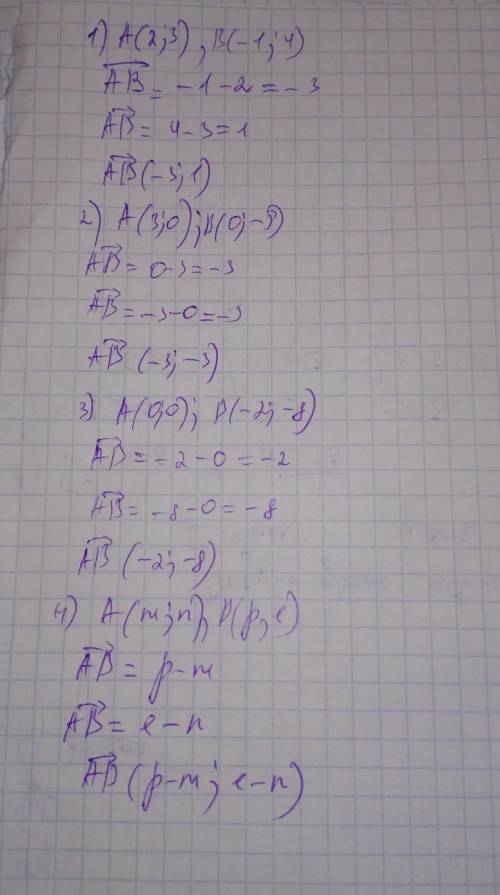 1) A(2;3), B(-1;4)
AB = -1-2=-3
AB = 4-3=1
AB(-3;1)
2) A(3;0); B(0;-3)
AB = 0-3=-3
AB = -3-0=-3
AB (-3;-3)
3) A(0;0); B(-2;-8)
AB = -2-0=-2
AB = -8-0=-8
AB (-2;-8)
4) A(m;n), B(p;e)
AB = p-m
AB = e-n
AB (p-m; e-n)